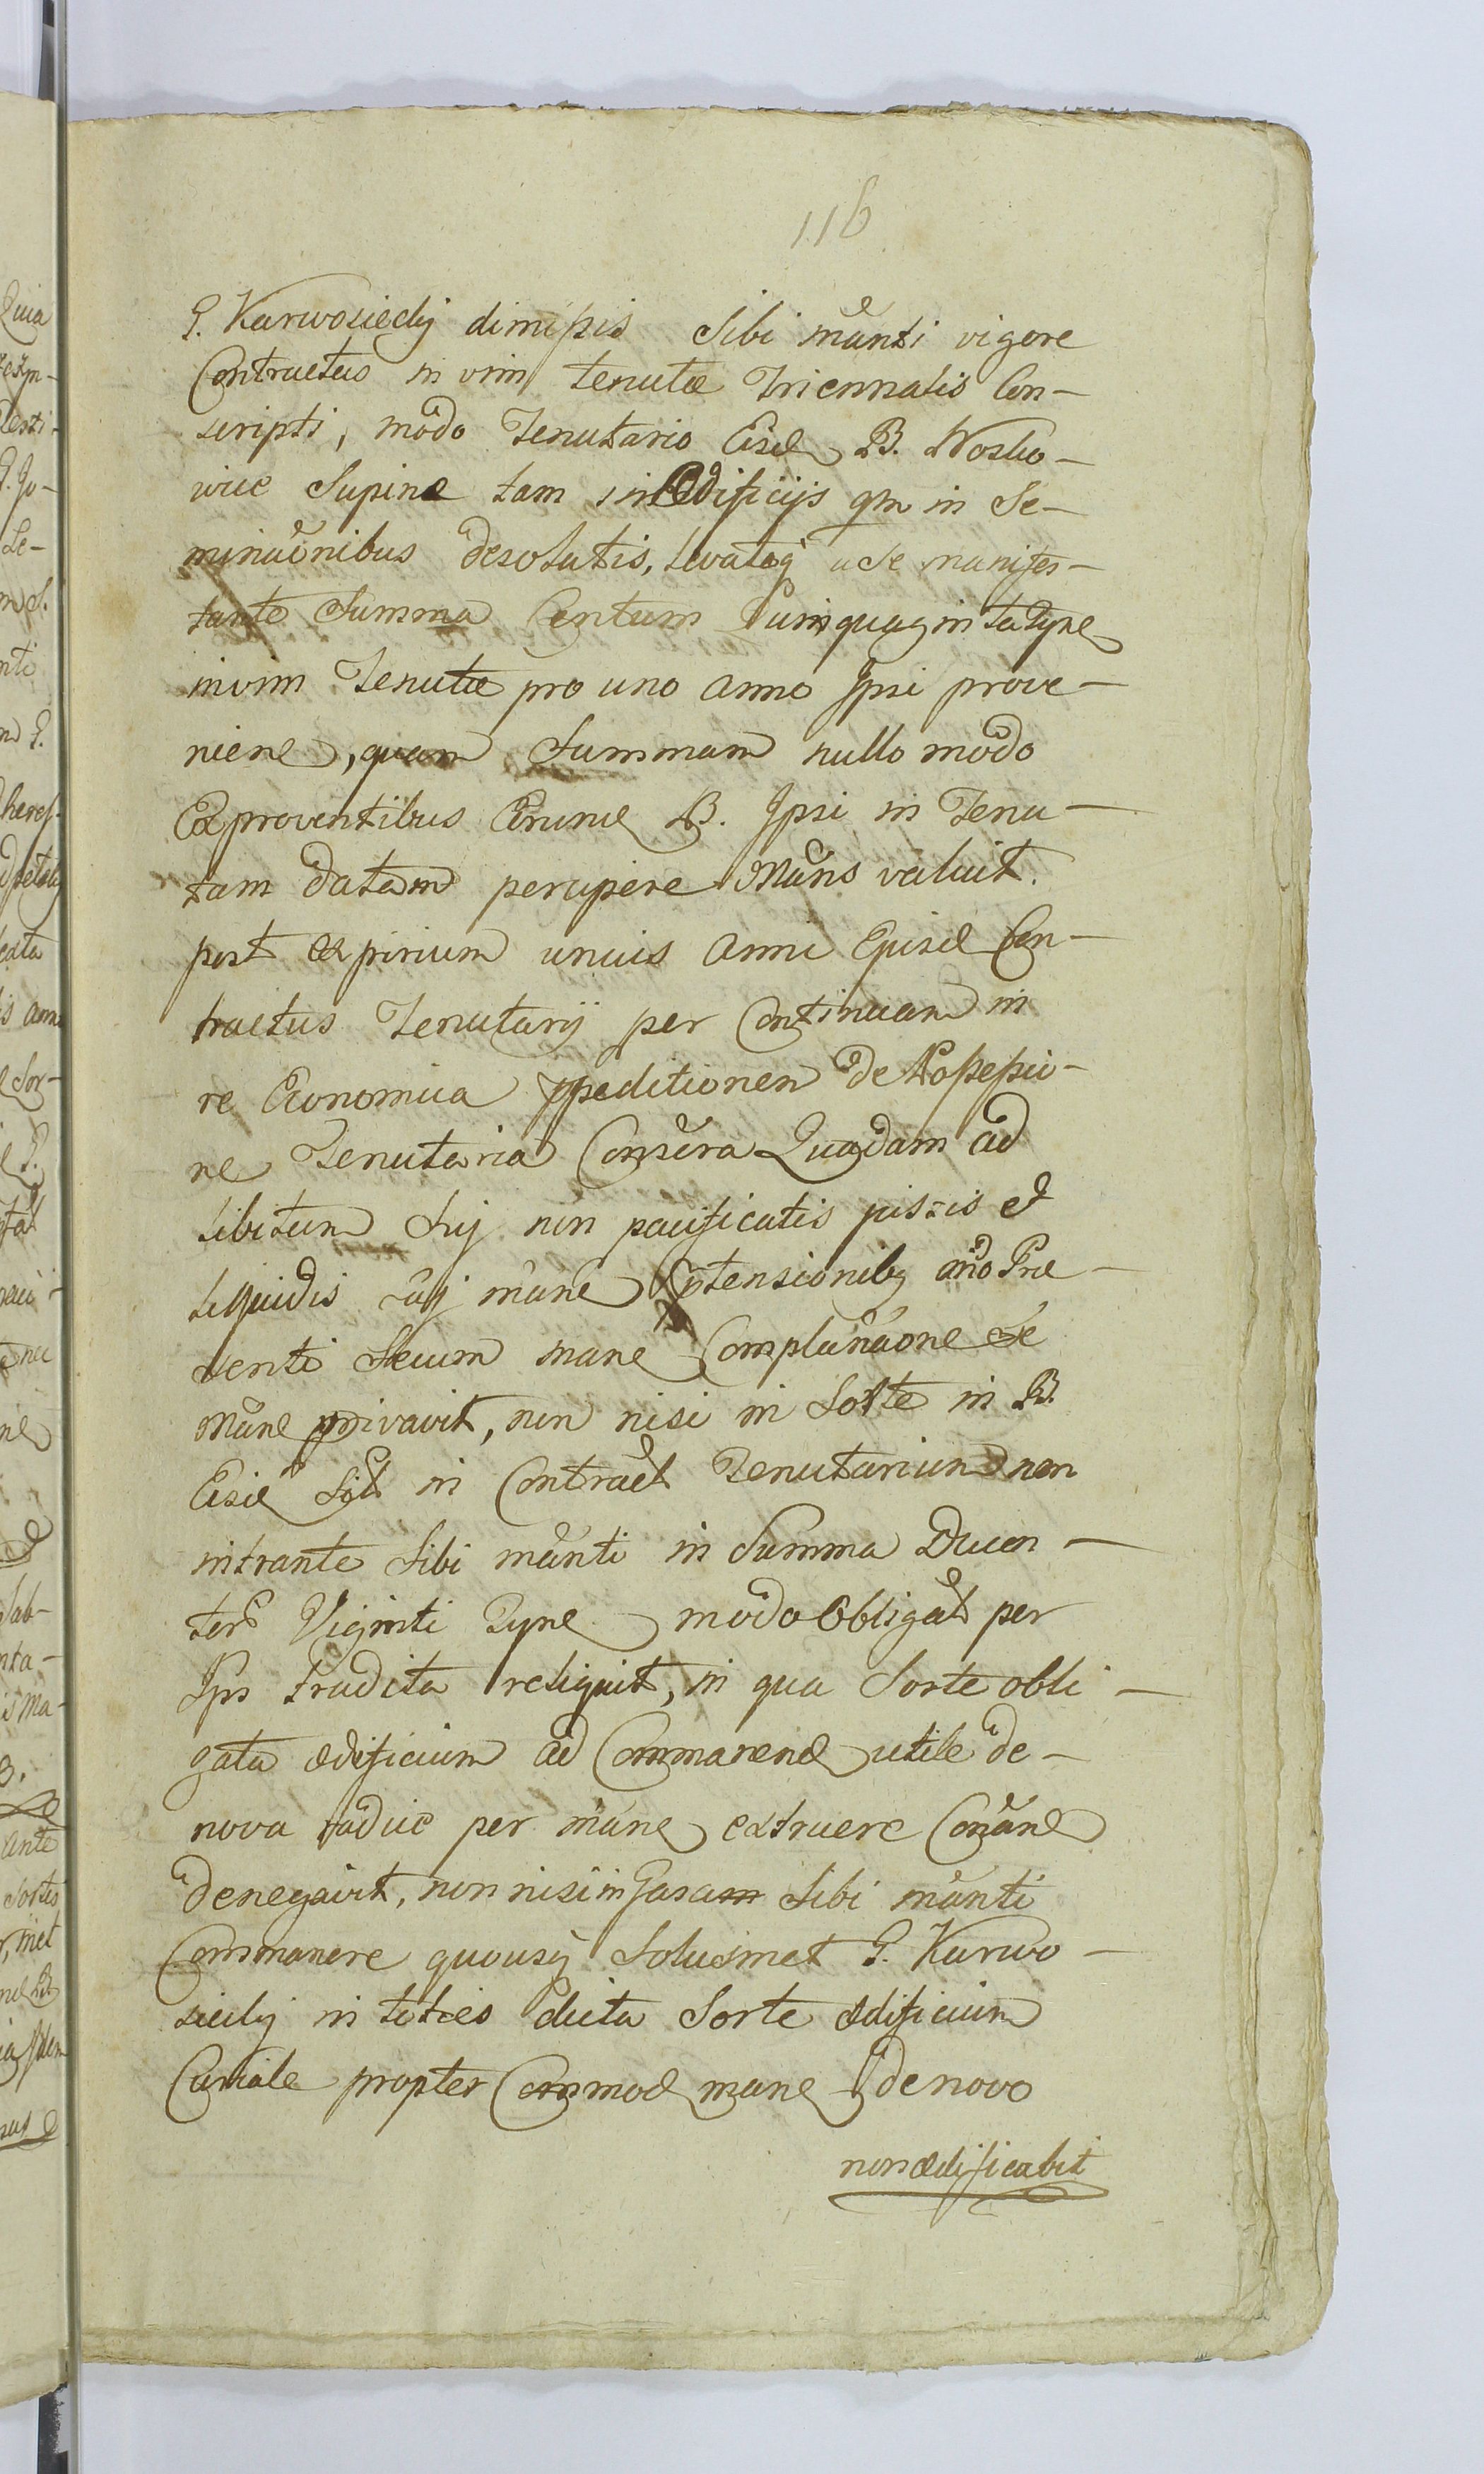 116
G. Karwosiecky dimissis Sibi mãnti vigore
Contractus in vim tenutæ Triennalis Con-
scripti, modo Tenutario Eisd B. Wosko-
wice Supinæ tam in Ædificijs qm in Se-
minãonibus desolatis, levataq a Se manifes-
tante Summa Centum Quinquaginta Tyne
in vim Tenutæ pro uno anno Ipsi prove-
niene, quam Summam nullo modo
Ex proventibus B. Ipsi in Tenu-
tam datam percipere Mãns valuit.
post expirium unius anni Ejusd Con-
tractus Tenutarij per Continuam in
re Economica ppeditionem de Possessio-
ne Tenutaria Quadam ad
libitum Suj non pacificatis justis et
liquidis mãne ptensionibq Præ
venti Secum mane Complãnaone Se
Mãne privavit, non nisi in Sorte in B.
Eisd in Contract Tenutarium non
intrante Sibi mãnti in Summa Ducen-
tor Viginti Tyne modo Obligat per
Ips tradita reliquit, in qua Sorte obli-
gata ædificium ad Commanend utile de-
nova aduc per mãne extruere
denegavit, non nisi in Sibi mãnti
Commanere quousq Solusmet G. Karwo-
siecky in toties dicta Sorte ædificium
Curiale propter Commod mane denovo
non ædificabit